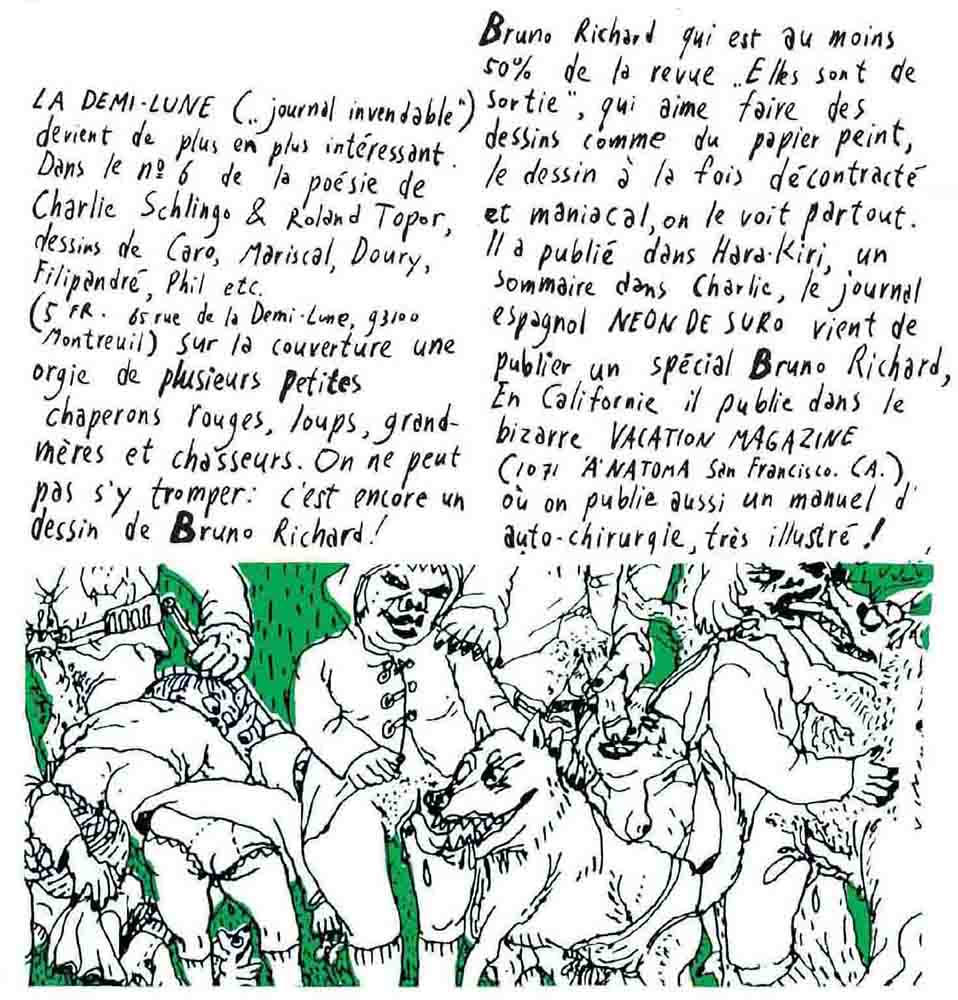 LA DEMI-LUNE („journal invendable")
devient de plus en plus intéressant.
Dans le nº 6 de la poésie de
Charlie Schlingo & Roland Topor,
dessins de Caro, Mariscal, Doury,
Filipandré, Phil etc.
(5 FR. 65 rue de la Demi-Lune, 93100
Montreuil) sur la couverture une
orgie de plusieurs petites
chaperons rouges, loups, grand-
mères et chasseurs. On ne peut
pas s'y tromper: c'est encore un
dessin de Bruno Richard!
Bruno Richard qui est au moins
50% de la revue „Elles sont de
sortie", qui aime faire des
dessins comme du papier peint,
le dessin à la fois décontracté
et maniacal, on le voit partout.
Il a publié dans Hara-Kiri, un
sommaire dans Charlie, le journal
espagnol NEON DE SURO vient de
publier un spécial Bruno Richard,
En Californie il publie dans le
bizarre VACATION MAGAZINE
(1071 'A'NATOMA San Francisco. CA.),
où on publie aussi un manuel d'
auto-chirurgie, très illustré!